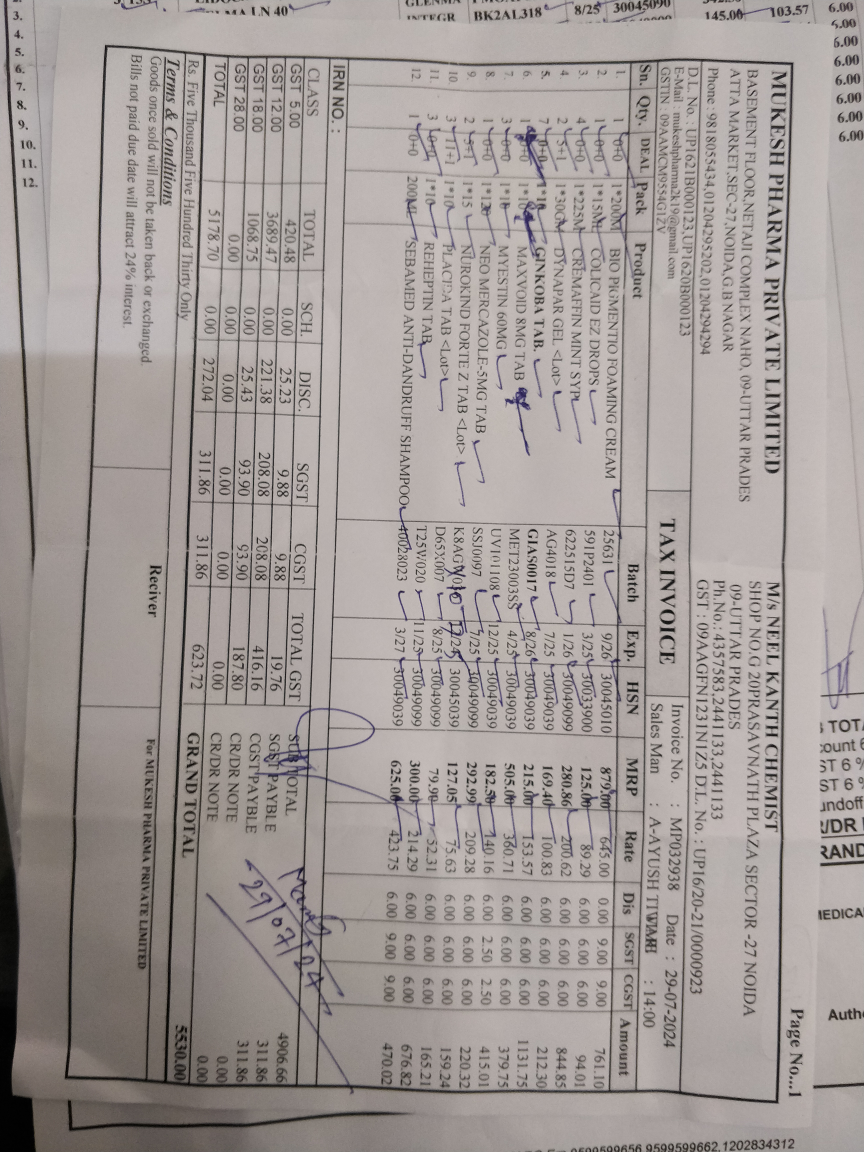 Page No...1
MUKESH PHARMA PRIVATE LIMITED
BASEMENT FLOOR,NETAJI COMPLEX NAHO, 09-UTTAR PRADES
ATTA MARKET,SEC-27,NOIDA,G.B NAGAR
Phone : 9818055434,01204295202,01204294294
D.L. No. : UP1621B000123,UP1620B000123
E-Mail : mukeshpharma2k19@gmail.com
GSTIN : 09AAMCM9554G1ZV
M/s NEEL KANTH CHEMIST
SHOP NO.G 20PRASAVNATH PLAZA SECTOR -27 NOIDA
09-UTTAR PRADES
Ph.No.: 4357583,2441133,2441133
GST : 09AAGFN1231N1Z5 D.L. No. : UP16/20-21/0000923
TAX INVOICE
Invoice No. : MP032938 Date : 29-07-2024
Sales Man : A-AYUSH : 14:00
Sn. Qty. DEAL Pack Product Batch Exp. HSN MRP Rate Dis SGST CGST Amount
1. 1 0+0 1*200M BIO PIGMENTIO FOAMING CREAM 25631 9/26 30045010 879.00 645.00 0.00 9.00 9.00 761.10
2. 1 0+0 1*15ML COLICAID EZ DROPS 591P2401 3/25 30033900 125.00 89.29 6.00 6.00 6.00 94.01
3. 4 0+0 1*225M CREMAFFIN MINT SYP 622515D7 1/26 30049099 280.86 200.62 6.00 6.00 6.00 844.85
4. 2 5+1 1*30GM DYNAPAR GEL <Lot> AG4018 7/25 30049039 169.40 100.83 6.00 6.00 6.00 212.30
5. 7 0+0 1*10 GINKOBA TAB. GIAS0017 8/26 30049039 215.00 153.57 6.00 6.00 6.00 1131.75
6. 1 0+0 1*10 MAXVOID 8MG TAB MET23003SS 4/25 30049039 505.00 360.71 6.00 6.00 6.00 379.75
7. 3 0+0 1*10 MYESTIN 60MG UVI01108 12/25 30049039 182.50 140.16 6.00 2.50 2.50 415.01
8. 1 0+0 1*120 NEO MERCAZOLE-5MG TAB SSJ0097 7/25 30049099 292.99 209.28 6.00 6.00 6.00 220.32
9. 2 5+1 1*15 NUROKIND FORTE Z TAB <Lot> 12/24 30045039 127.05 75.63 6.00 6.00 6.00 159.24
10. 3 11+1 1*10 PLACIDA TAB <Lot> D65X007 8/25 30049099 79.90 52.31 6.00 6.00 6.00 165.21
11. 3 1*10 REHEPTIN TAB T25W020 11/25 30049099 300.00 214.29 6.00 6.00 6.00 676.82
12. 1 0+0 200ML SEBAMED ANTI-DANDRUFF SHAMPOO 40028023 3/27 30049039 625.00 423.75 6.00 9.00 9.00 470.02
IRN NO. :
CLASS TOTAL SCH. DISC. SGST CGST TOTAL GST
GST 5.00 420.48 0.00 25.23 9.88 9.88 19.76
GST 12.00 3689.47 0.00 221.38 208.08 208.08 416.16
GST 18.00 1068.75 0.00 25.43 93.90 93.90 187.80
GST 28.00 0.00 0.00 0.00 0.00 0.00 0.00
TOTAL 5178.70 0.00 272.04 311.86 311.86 623.72
SUB TOTAL 4906.66
SGST PAYBLE 311.86
CGST PAYBLE 311.86
CR/DR NOTE 0.00
CR/DR NOTE 0.00
GRAND TOTAL 5530.00
29/07/24
Rs. Five Thousand Five Hundred Thirty Only
Terms & Conditions
Goods once sold will not be taken back or exchanged.
Bills not paid due date will attract 24% interest.
Reciver
For MUKESH PHARMA PRIVATE LIMITED
INTEGR BK2AL318 8/25 30045090 145.00 103.57 6.00
6.00
6.00
6.00
6.00
6.00
3.
4.
5.
6.
7.
8.
9.
10.
11.
12.
9599599656,9599599662,1202834312